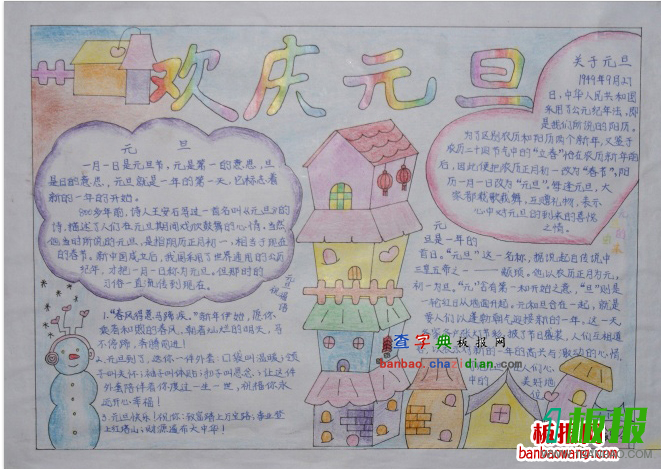 欢庆元旦
元 旦
一月一日是元旦节,元是第一的意思,旦
是日的意思,元旦就是一年的第一天,它标志着
新的一年的开始。
800多年前,诗人王安石写过一首名叫《元旦》的
诗,描述了人们在元旦期间欢欣鼓舞的心情。当然
当时所说的元旦,是指阴历正月初一,相当于现在
的春节。新中国成立后,我国采用了世界通用的公元
纪年,才把一月一日称为元旦。但那时的
习俗一直流传到现在。
关于元旦
1949年9月27
日,中华人民共和国
采用了公元纪年法,即
是我们所说的阳历。
为了区别农历和阳历两个新年,又鉴于
农历二十四节气中的“立春”恰在农历新年前
后,因此便把农历正月初一改为“春节”,阳
历一月一日改为“元旦”。每逢元旦,大
家都载歌载舞,互赠礼物,表示
心中对元旦的到来的喜悦
之情。
元旦祝福语
1.“春风得意马蹄疾。”新年伊始,愿你
乘着和煦的春风,朝着灿烂的明天,马
不停蹄,奔腾前进!
2.元旦到了,送你一件外套:口袋叫温暖;领
子叫关怀;袖子叫体贴;扣子叫思念;让这件
外套陪伴着你渡过一生一世,祝福你永
远开心幸福!
3.元旦快乐!祝你:致富踏上万宝路;事业登
上红塔山;财源遍布大中华!
元
旦是一年的
首日。“元旦”这一名称,据说起自传说中
三皇五帝之一——颛顼。他以农历正月为元,
初一为旦。“元”含有第一和开始之意,“旦”则是
一轮红日从地面升起。元和旦合在一起,就是
要人们以蓬勃朝气迎接新的一年。这一天
披了节日盛装,人们互相道
新的一年的高兴与激动的心情
人们心
中的
美好地
位
查字典板报网
banbao.chazidian.com
板报
板报网
banbaowang.com